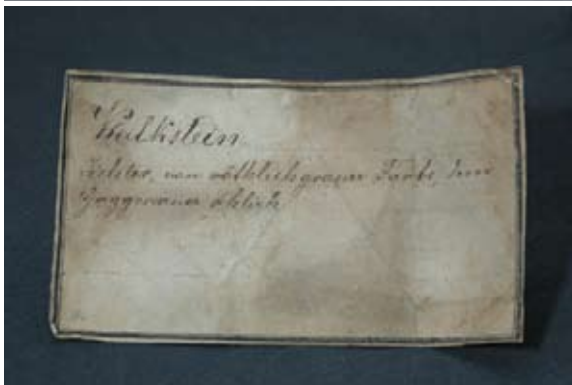 Kalkstein
dichter, von röthlichgrauer Farbe, dem
ähnlich